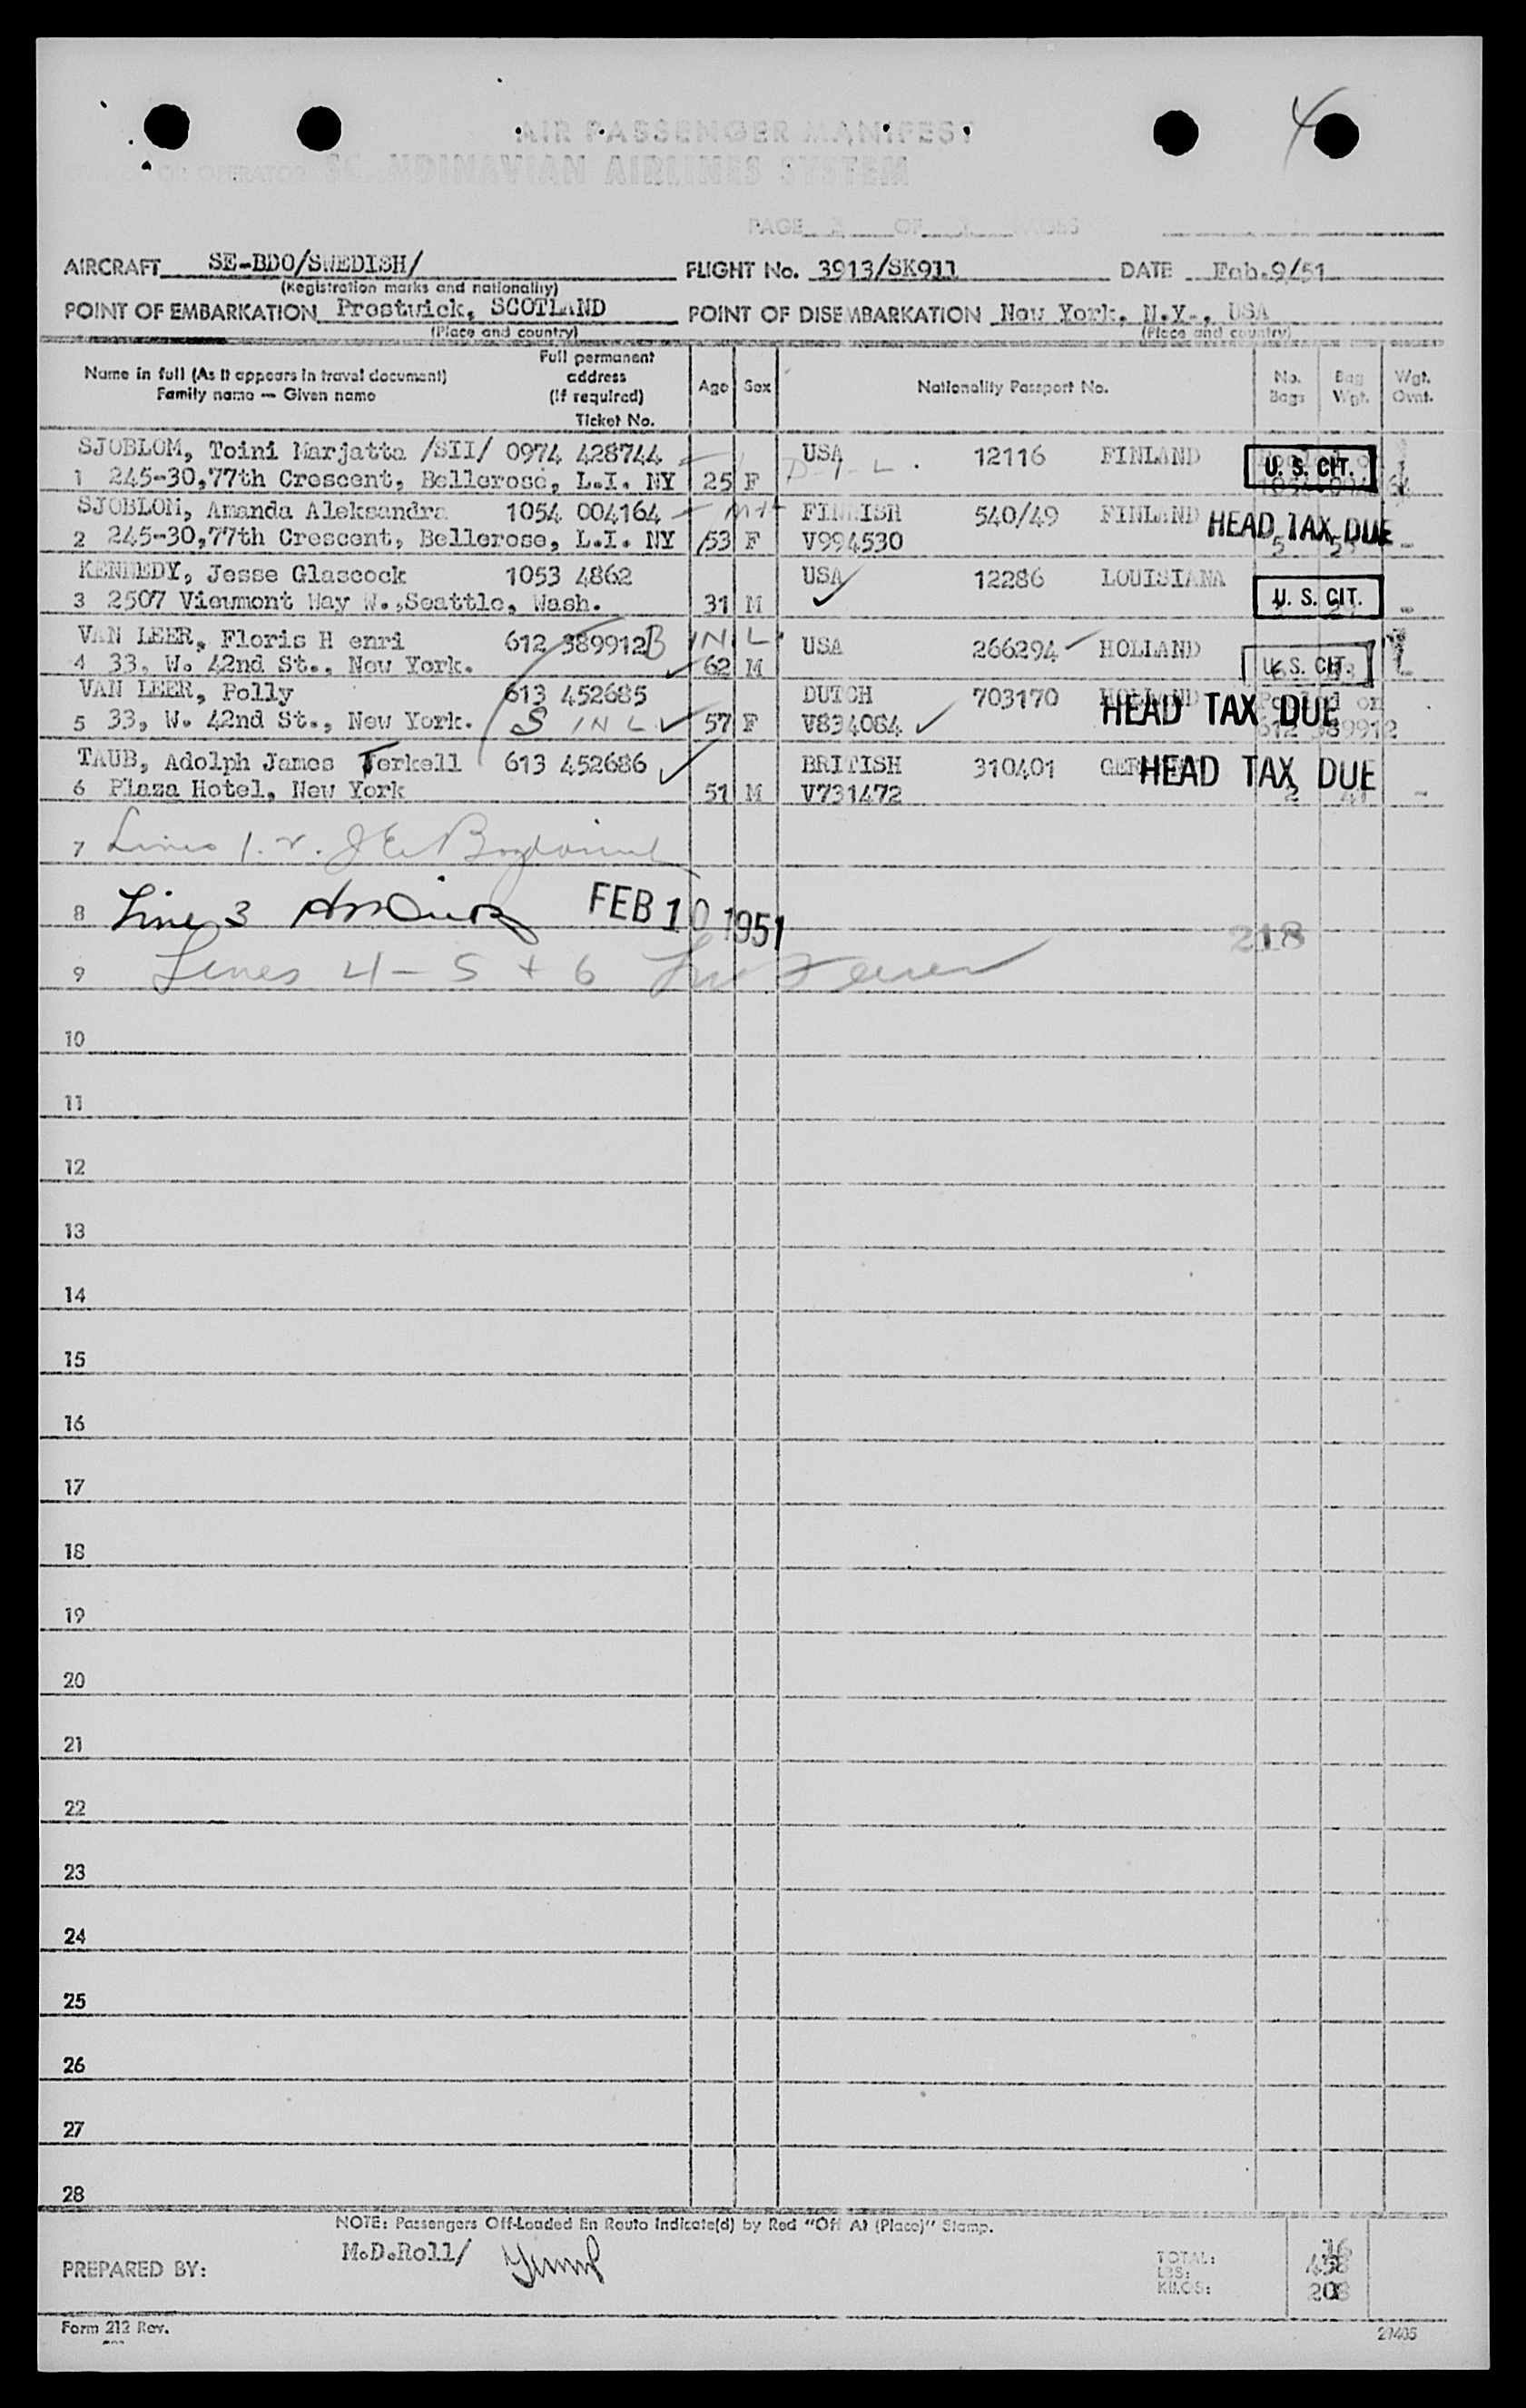 4
AIR PASSENGER MANIFEST
OR OPERATOR SCANDINAVIAN AIRLINES SYSTEM
PAGE OF
AIRCRAFT SE-BDO/SWEDISH/ FLIGHT No. 3913/SK911 DATE Feb.9/51
(Registration marks and nationality)
POINT OF EMBARKATION Prestwick, SCOTLAND POINT OF DISEMBARKATION New York, N.Y., USA
(Place and country) (Place and country)
Name in full (As it appears in travel document) Family name — Given name Full permanent address (If required) Ticket No. Age Sex Nationality Passport No. No. Bags Bag Wgt. Wgt. Ovnt.
SJOBLOM, Toini Marjatta /SII/ 0974 428744 USA 12116 FINLAND U. S. CIT.
1 245-30,77th Crescent, Bellerose, L.I. NY 25 F
SJOBLOM, Amanda Aleksandra 1054 004164 FINNISH 540/49 FINLAND HEAD TAX DUE
2 245-30,77th Crescent, Bellerose, L.I. NY 53 F V994530 5 -
KENNEDY, Jesse Glascock 1053 4862 USA 12286 LOUISIANA U. S. CIT.
3 2507 Viewmont Way W.,Seattle, Wash. 31 M -
VAN LEER, Floris H enri 612 389912 B INL. USA 266294 HOLLAND U. S. CIT.
4 33, W. 42nd St., New York. 62 M
VAN LEER, Polly 613 452685 DUTCH 703170 HOLLAND Pooled on HEAD TAX DUE
5 33, W. 42nd St., New York. S INL 57 F V834084 612 389912
TAUB, Adolph James Terkell 613 452686 BRITISH 310401 HEAD TAX DUE
6 Plaza Hotel, New York 51 M V731472 2 41 -
7 Lines 1.2.
8 Line 3 FEB 10 1951 218
9 Lines 4 - 5 + 6
10
11
12
13
14
15
16
17
18
19
20
21
22
23
24
25
26
27
28
NOTE: Passengers Off-Loaded En Route Indicate(d) by Red "Off At (Place)" Stamp.
PREPARED BY: M.D.Roll/
TOTAL: 16
LBS: 458
KILOS: 208
Form 212 Rev.
27405